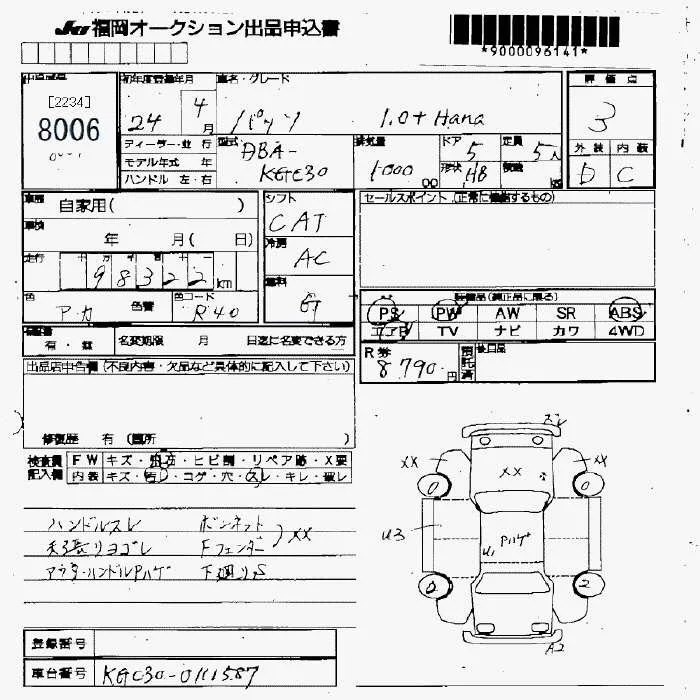 JU 福岡オークション出品申込書
*9000096141*
出品番号
[2234]
8006
初年度登録年月
24 4月
車名・グレード
パッソ 1.0+Hana
評価点
3
外装 内装
D C
ディーラー・並行
モデル年式 年
ハンドル 左・右
型式
DBA-
KGC30
排気量
1000
ドア
5
形状
HB
定員
5人
積載
車歴
自家用( )
車検
年 月( 日)
走行
98322km
色
アカ
色替
色コード
R40
シフト
CAT
冷房
AC
燃料
G
セールスポイント (正常に機能するもの)
装備品(純正品に限る)
PS PW AW SR ABS
エアB TV ナビ カワ 4WD
保証書
有・無
名変期限 月 日迄に名変できる方
R券
8790円
預託済
後日品
出品店申告欄 (不良内容・欠品など具体的に記入して下さい)
修復歴 有 (箇所 )
検査員記入欄
FW キズ・飛石・ヒビ割・リペア跡・X要
内装 キズ・汚レ・コゲ・穴・スレ・キレ・破レ
ハンドルスレ ボンネット
内張りヨゴレ Fフェンダー XX
アウターハンドルPハゲ 下廻りS
スレ
XX XX XX
0 0
U3 U1 Pハゲ
2 2
A2
登録番号
車台番号 KGC30-0111587